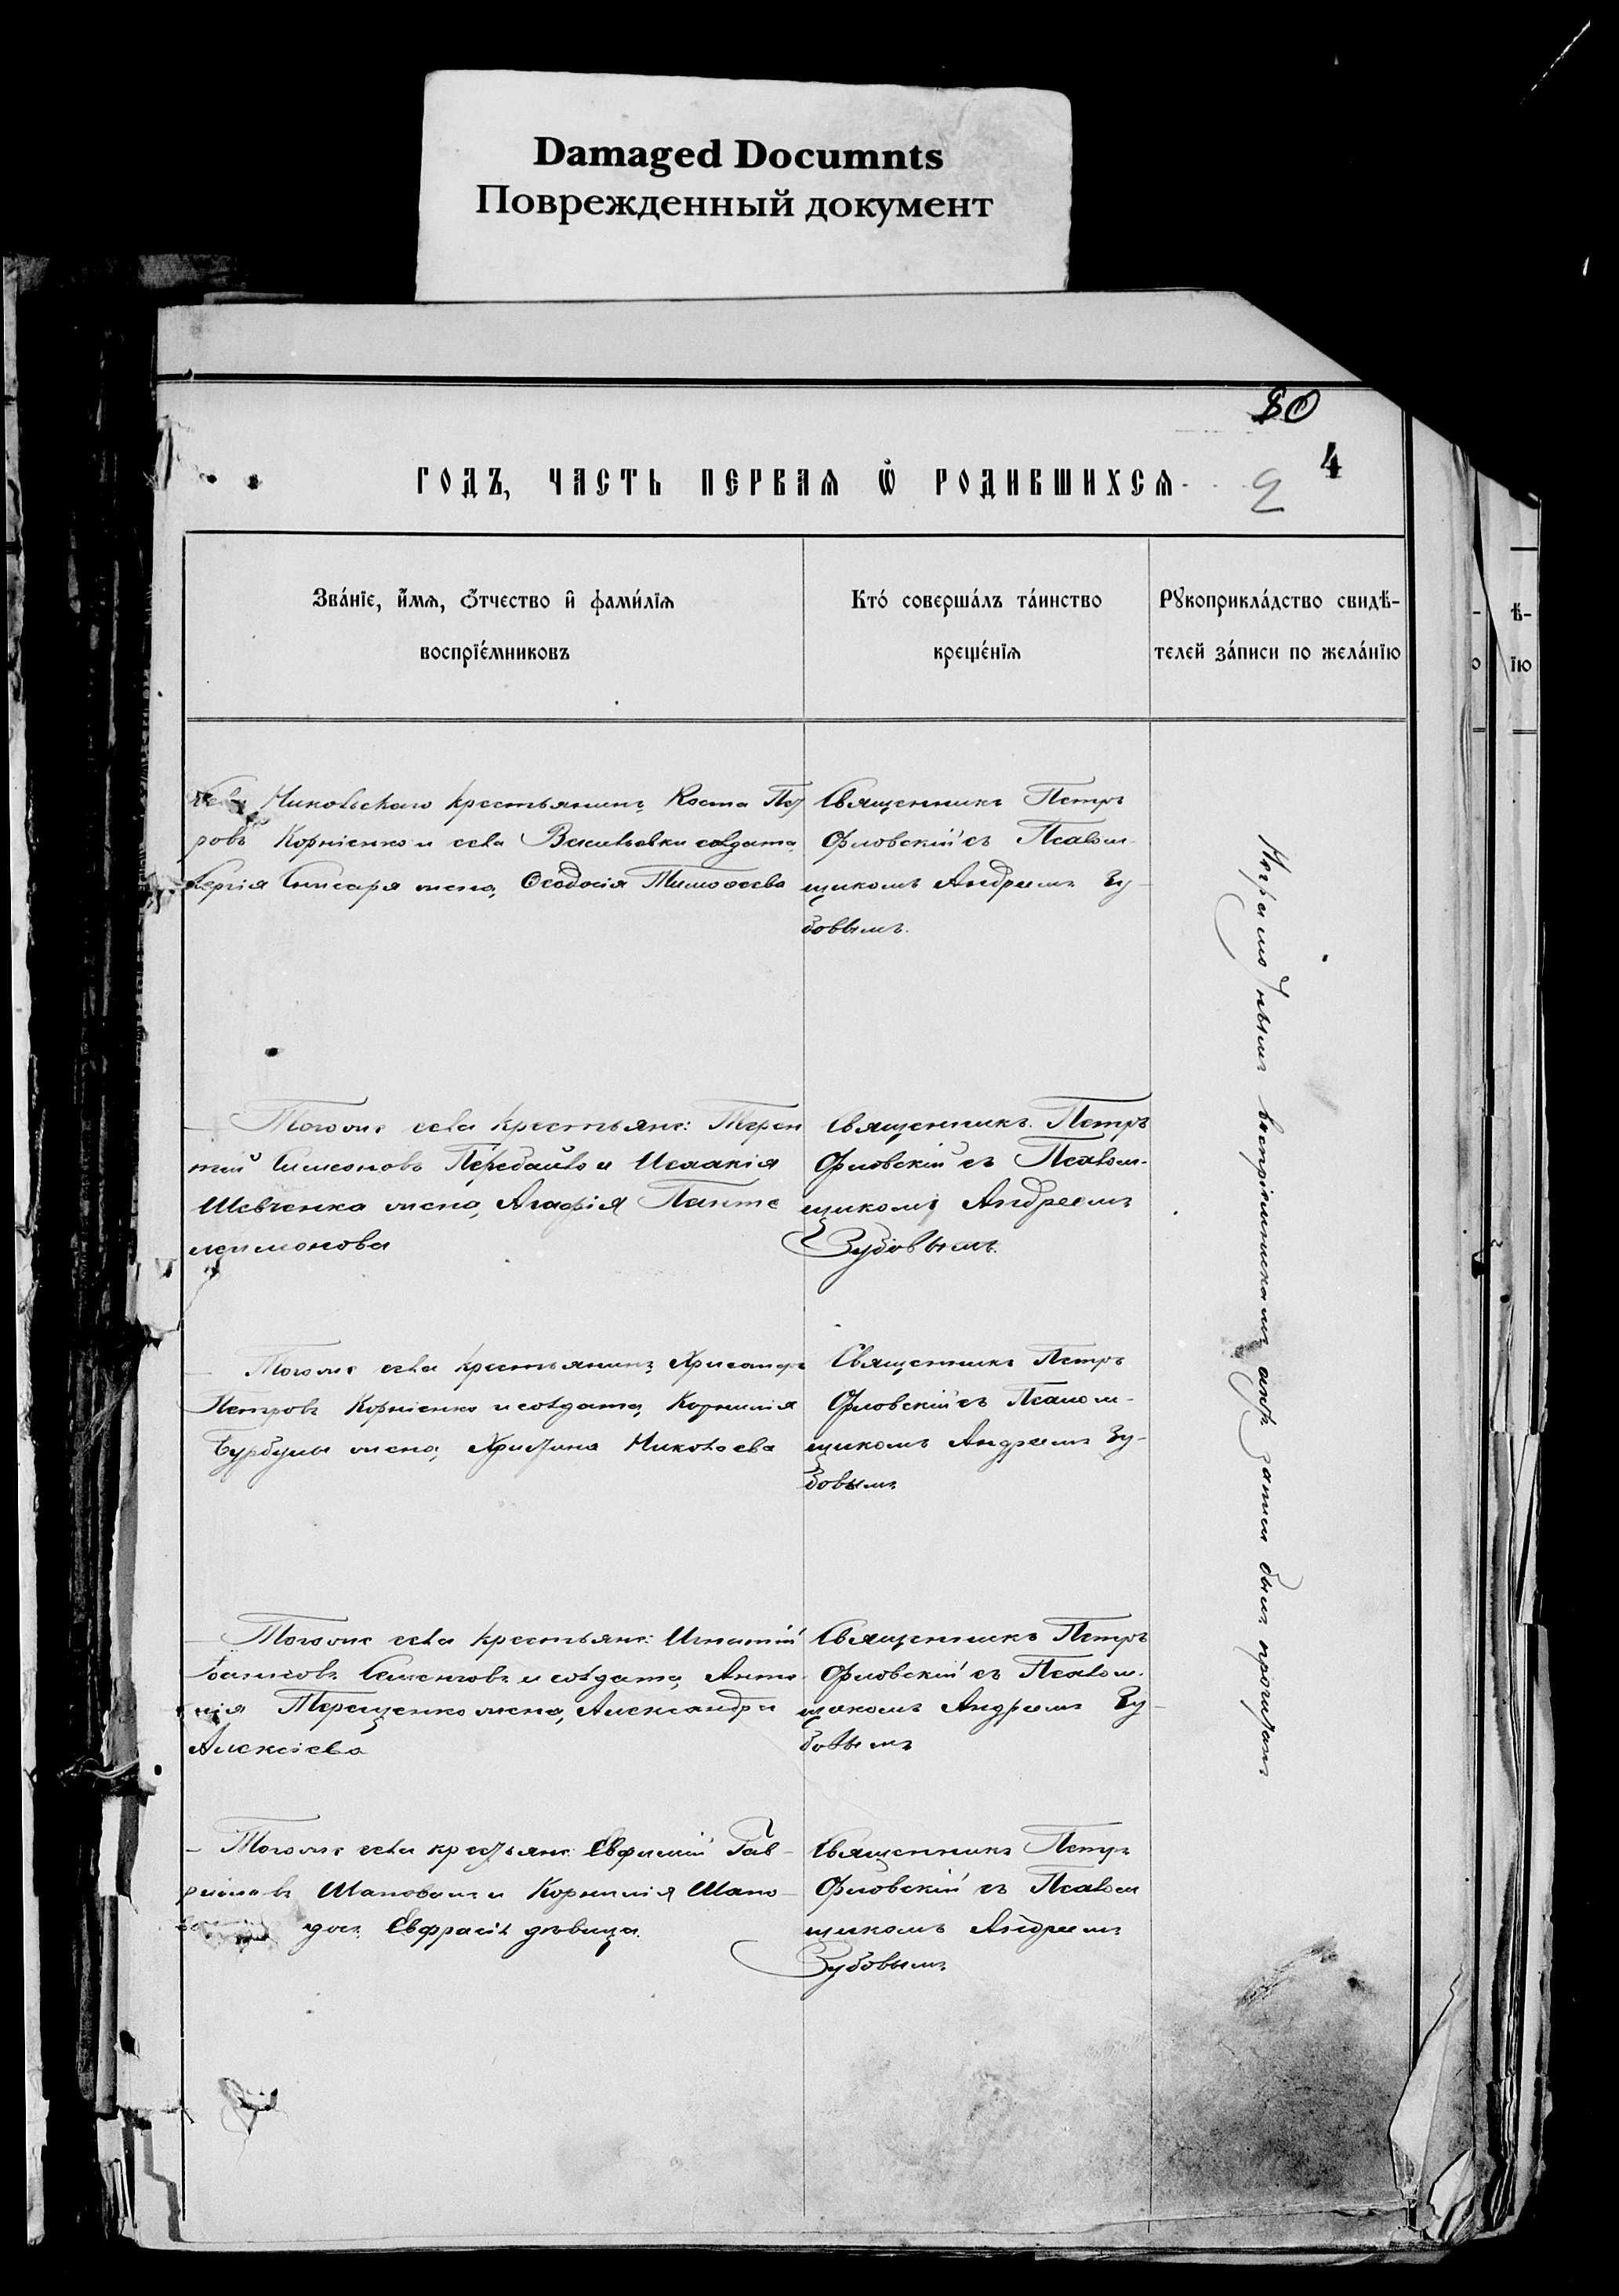 Damaged Documnts
Поврежденный документ
80
4
ГОДЪ, ЧАСТЬ ПЕРВАЯ Ѿ РОДИВШИХСЯ
Зва́нїе, и҆́мѧ, ѻ҆́тчество и҆ фами́лїѧ
воспрїе́мниковъ
Кто́ соверша́лъ та́инство
креще́нїѧ
Рꙋкоприкла́дство свидѣ-
телей за́писи по жела́нїю
Никольскаго крестьянинъ Коста Пет
ровъ Корніенко и села Васильевки солдата
Сергія жена, Ѳеодосія Тимоѳеева
Священникъ Петръ
Орловскій съ Псалом-
щикомъ Андреемъ Зу-
бовымъ.
Тогоже села крестьяне: Терен
тій Симеоновъ Передайло и Исаакія
Шевченка жена, Агафія Панте
леимонова
Священникъ Петръ
Орловскій съ Псалом-
щикомъ Андреемъ
Зубовымъ.
Тогоже села крестьянинъ Хрисанфъ
Петровъ Корніенко и солдата, Корнилія
жена, Христина Николаева
Священникъ Петръ
Орловскій съ Псалом-
щикомъ Андреемъ Зу-
бовымъ
Тогоже села крестьяне: Игнатій
Семенговъ и солдата, Анто
нія Терещенко жена, Александра
Алексіева
Священникъ Петръ
Орловскій съ Псалом-
щикомъ Андреемъ Зу-
бовымъ
Тогоже села крестьяне: Евфимій Гав-
риловъ Шаповалъ и Корнилія Шапо-
дочь Евфрасія дѣвица.
Священникъ Петръ
Орловскій съ Псалом
щикомъ Андреемъ
Зубовымъ
Неграмотнымъ воспріемникамъ актъ записи былъ прочитанъ
ѣ-
їю